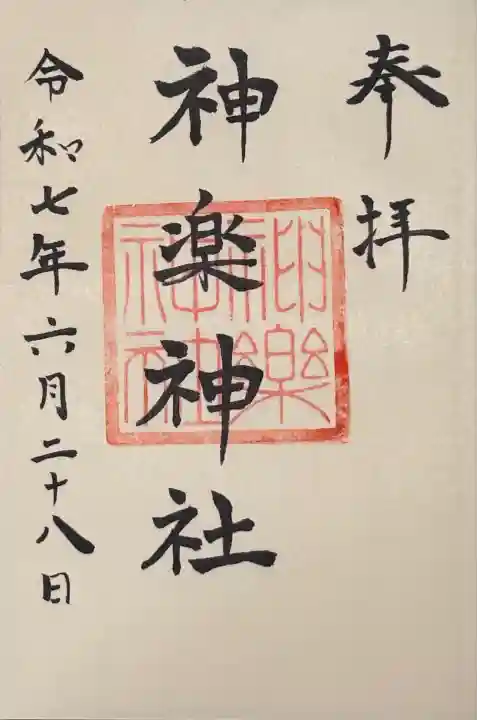 奉拝
神楽神社
神樂神社
令和七年六月二十八日